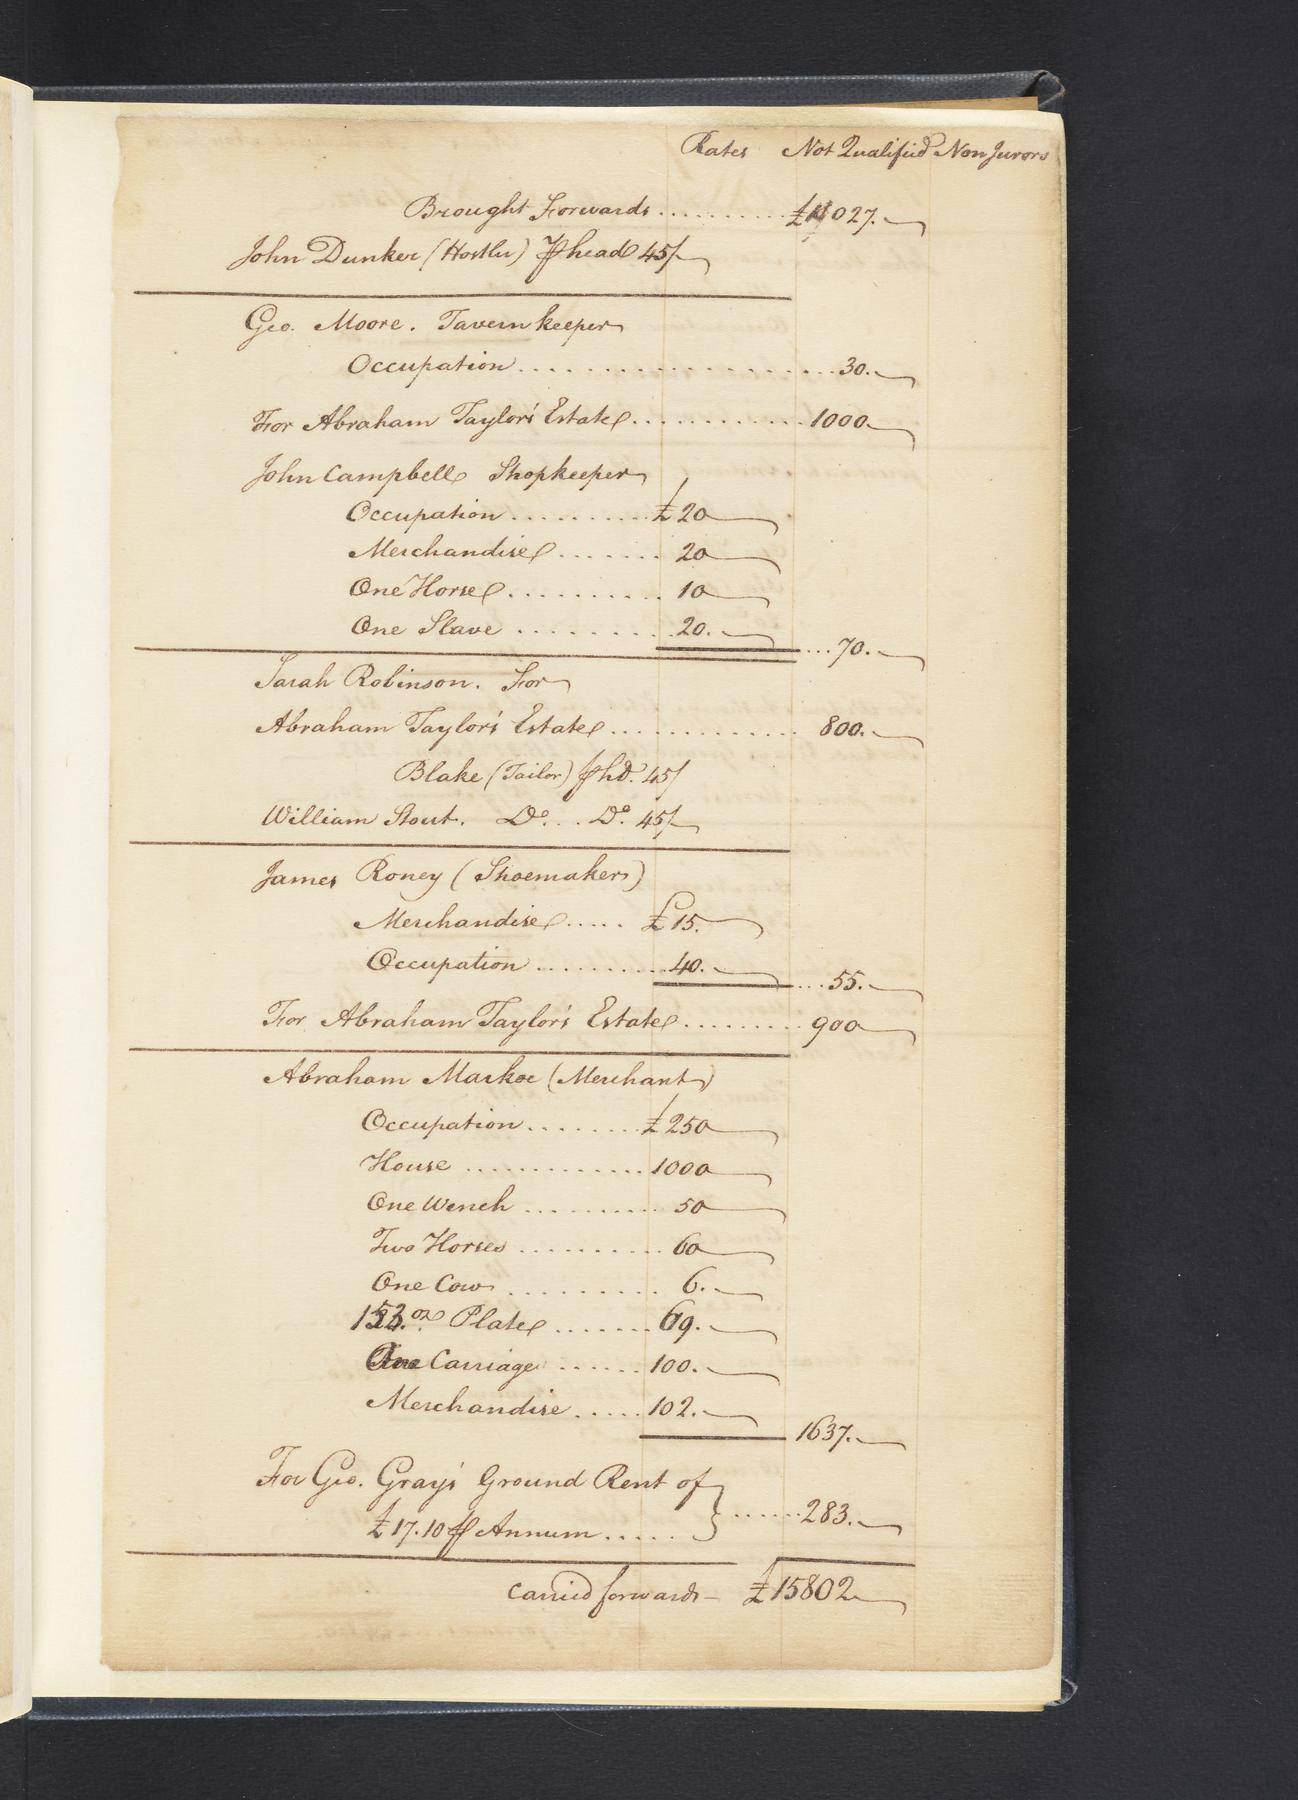 Rates Not Qualified Non Jurors
Brought Forwards .......... £11027.
John Dunker (Hostler) ⅌ head 45/
Geo. Moore. Tavern keeper
Occupation .......... 30.
For Abraham Taylor's Estate .......... 1000
John Campbell Shopkeeper
Occupation .......... £20
Merchandise ....... 20
One Horse .......... 10
One Slave ......... 20. ... 70.
Sarah Robinson. For
Abraham Taylor's Estate ............. 800.
Blake (Tailor) ⅌ hd. 45/
William Stout. Do. .. Do. 45/
James Roney (Shoemaker)
Merchandise ..... £15.
Occupation .......... 40. ... 55.
For Abraham Taylor's Estate ......... 900
Abraham Markoe (Merchant)
Occupation ........ £250
House ............. 1000
One Wench .......... 50
Two Horses .......... 60
One Cow .......... 6.
153. oz Plate ....... 69.
One Carriage ...... 100.
Merchandise ..... 102. 1637.
For Geo. Gray's Ground Rent of
£17.10 ⅌ Annum ..... } ...... 283.
Carried forwards — £15802